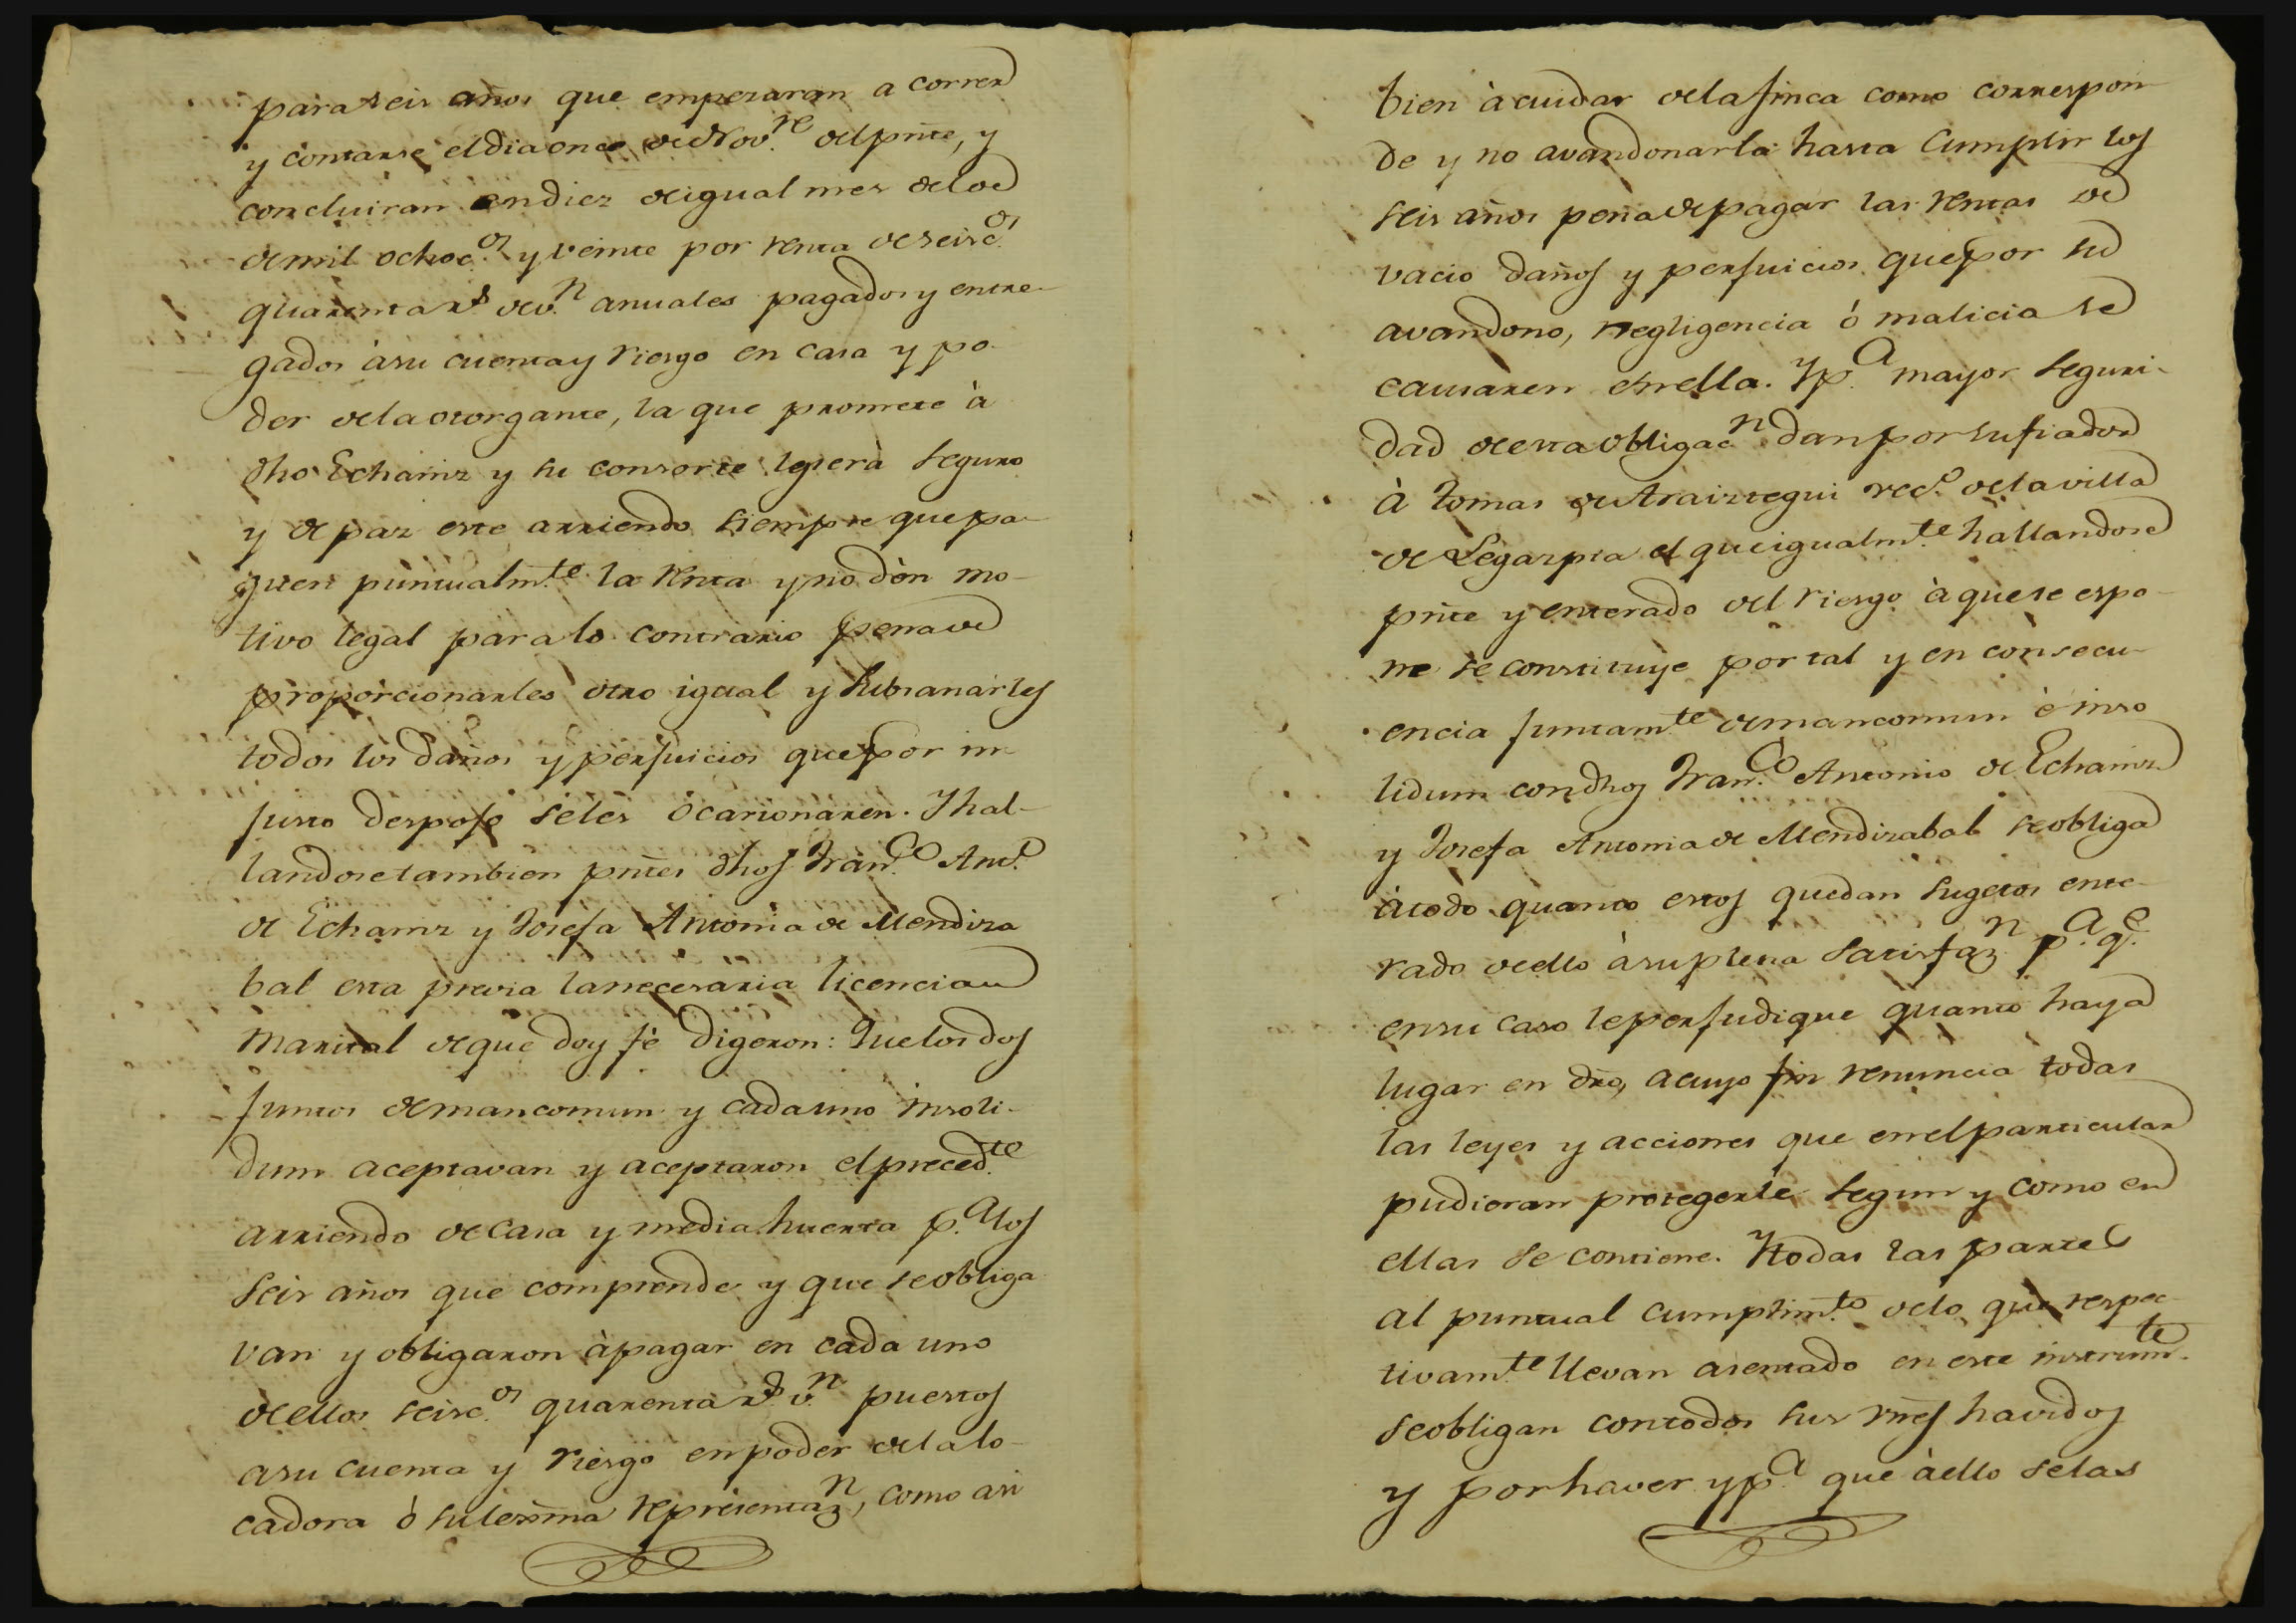 para seis años que empezaran a correr
y contarse el dia once de Nov.re del pñte, y
concluiran en diez de igual mes del de
de mil ochoc.os y veinte por renta de seisc.os
quarenta rs de v.n anuales pagados y entre-
gados à su cuenta y riesgo en casa y po-
der de la otorgante, la que promete à
dho Echaniz y su consorte les serà seguro
y de paz este arriendo siempre que pa-
guen puntualm.te la renta y no dèn mo-
tivo legal para lo contrario pena de
proporcionarles otro igual y subsanarles
todos los daños y perjuicios que por in-
justo despojo se les ocasionaren. Y hal-
landose tambien pñtes dhos Fran.co Ant.o
de Echaniz y Josefa Antonia de Mendiza
bal esta previa la necesaria licencia
marital de que doy fé digeron: Que los dos
juntos de mancomun y cada uno insoli-
dum aceptavan y aceptaron el preced.te
arriendo de casa y media huerta p.a los
seis años que comprende y que se obliga
van y obligaron à pagar en cada uno
de ellos seisc.os quarenta rs v.n puestos
a su cuenta y riesgo en poder de la lo-
cadora ó su lexma representaz.n, como asi
bien à cuidar de la finca como correspon-
de y no avandonarla hasta cumplir los
seis años pena de pagar las rentas de
vacio daños y perjuicios que por su
avandono, negligencia ó malicia se
causaren en ella. Y p.a mayor seguri-
dad de esta obligac.n dan por su fiador
à Tomas de Araiztegui vec.o de la villa
de Legazpia el que igualm.te hallandose
pñte y enterado del riesgo à que se espo-
ne se constituye por tal y en consecu-
encia juntam.te de mancomun è inso
lidum con dhos Fran.co Antonio de Echaniz
y Josefa Antonia de Mendizabal se obliga
à todo quanto estos quedan sugetos ente-
rado de ello à su plena satisfaz.n p.a q.e
en su caso le perjudique quanto haya
lugar en dro, a cuyo fin renuncia todas
las leyes y acciones que en el particular
pudieran protegerle segun y como en
ellas se contiene. Y todas las partes
al puntual cumplim.to de lo que respec-
tivam.te llevan asentado en este instrum.to
se obligan con todos sus vñes havidos
y por haver y p.a que à ello se las